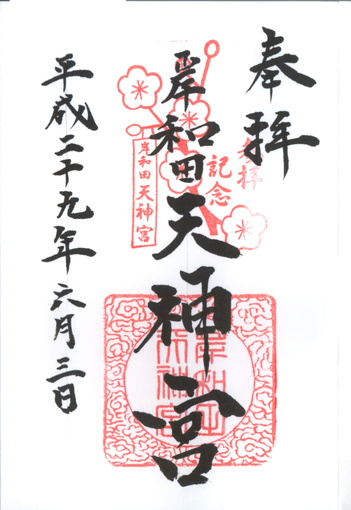 奉拝
参拝
記念
岸和田天神宮
岸和田天神宮
岸和田
天神宮
平成二十九年六月三日